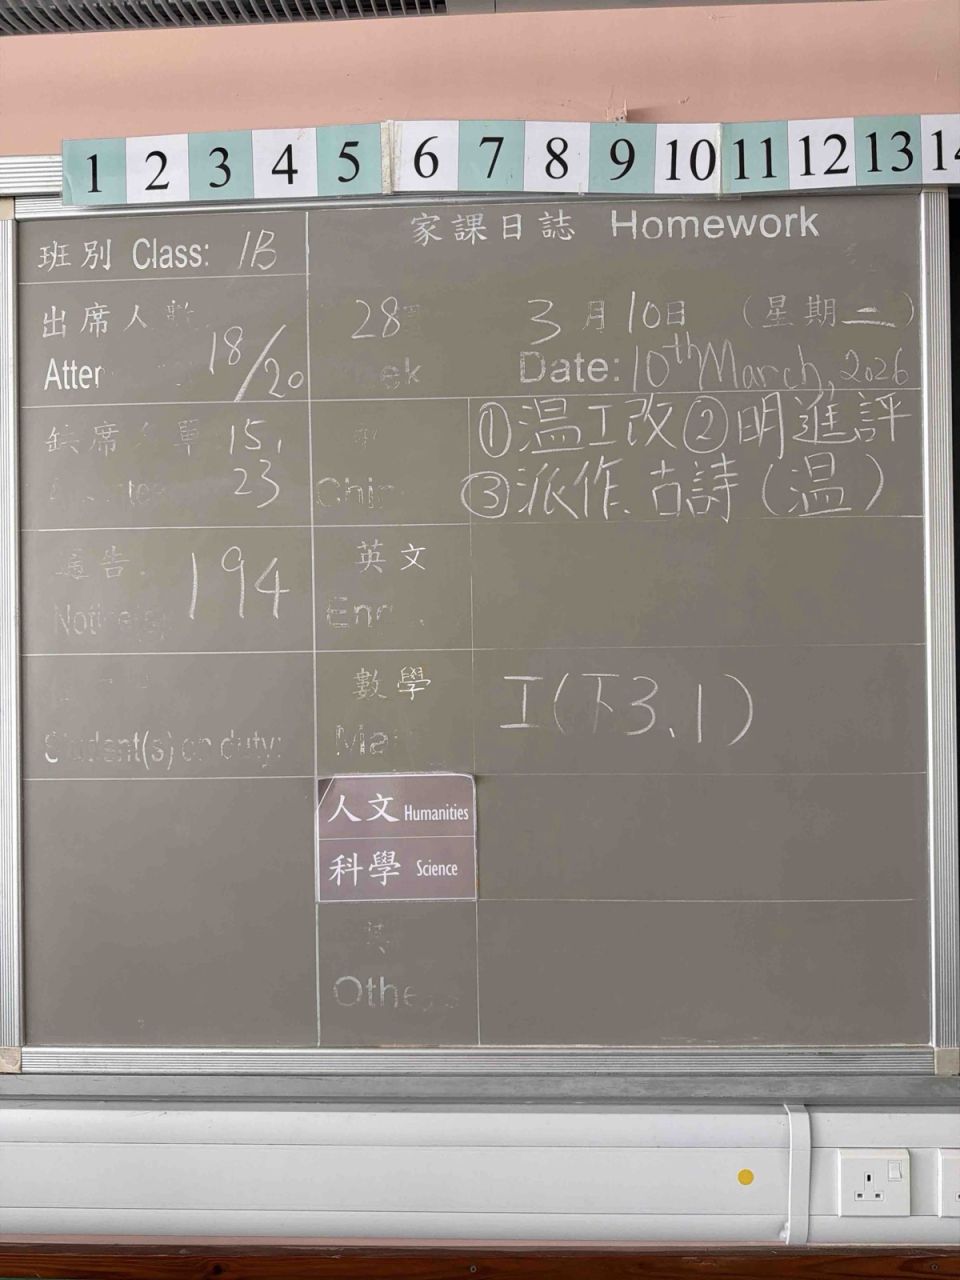 1 2 3 4 5 6 7 8 9 10 11 12 13 14
家課日誌 Homework
班別 Class: 1B
出席人數 18/20
28
3月10日 (星期二)
Date: 10th March, 2026
缺席名單 15, 23
①温工改②明進評
③派作、古詩(温)
通告 194
Notice(s)
英文
數學
工(下3.1)
Student(s) on duty:
人文 Humanities
科學 Science